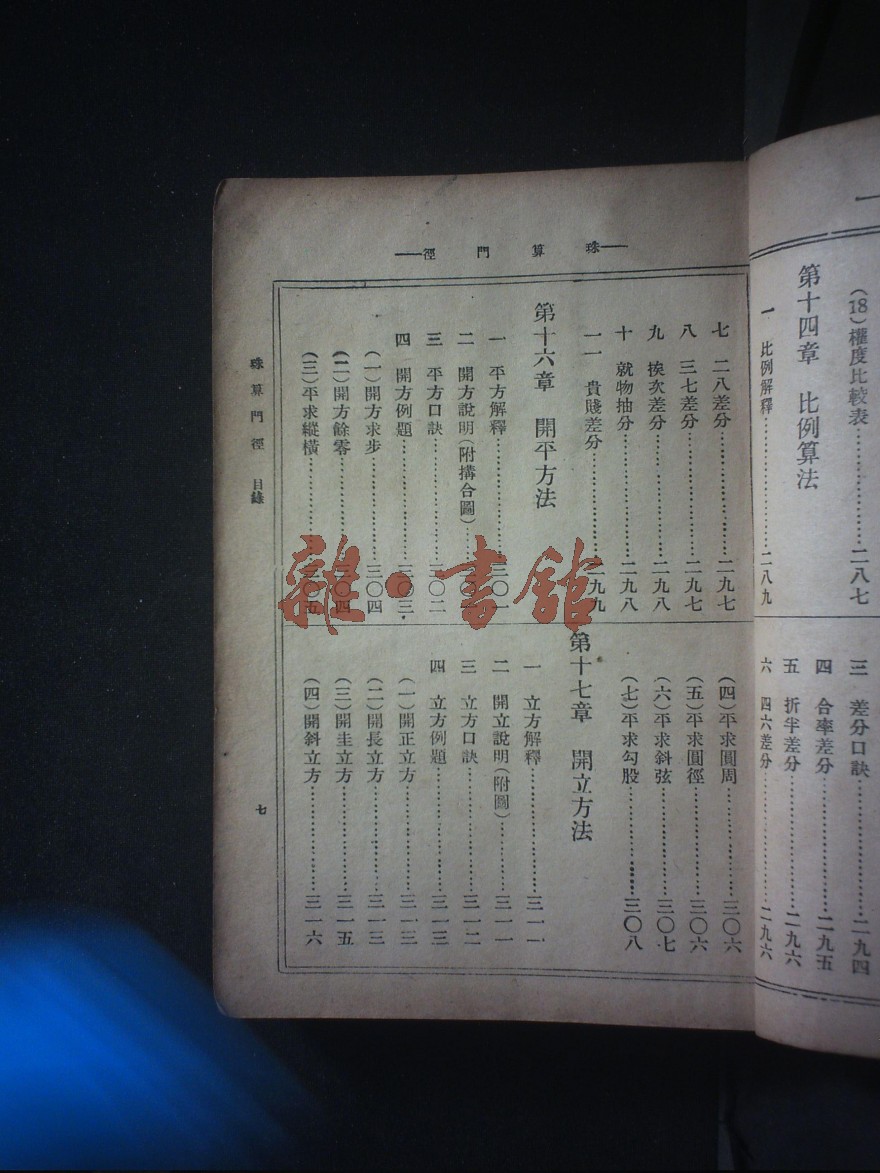 (18)權度比較表……二八七
第十四章 比例算法
一 比例解釋……二八九
三 差分口訣……二九四
四 合率差分……二九五
五 折半差分……二九六
六 四六差分……二九六
珠算門徑
七 二八差分……二九七
八 三七差分……二九七
九 挨次差分……二九八
十 就物抽分……二九八
一一 貴賤差分……二九九
第十六章 開平方法
一 平方解釋……三〇一
二 開方說明(附搆合圖)……
三 平方口訣……三〇二
四 開方例題……三〇三
(一)開方求步……三〇四
(二)開方餘零……三〇四
(三)平求縱橫……三〇五
(四)平求圓周……三〇六
(五)平求圓徑……三〇六
(六)平求斜弦……三〇七
(七)平求勾股……三〇八
第十七章 開立方法
一 立方解釋……三一一
二 開立說明(附圖)……三一一
三 立方口訣……三一二
四 立方例題……三一三
(一)開正立方……三一三
(二)開長立方……三一三
(三)開圭立方……三一五
(四)開斜立方……三一六
珠算門徑 目錄
七
雜·書館